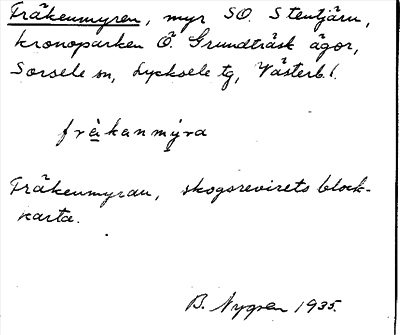 Fräkenmyren, myr SO. Stentjärn,
kronoparken Ö. Grundträsk ägor,
Sorsele sn, Lycksele tg, Västerb. l.
fräkanmyra
Fräkenmyran, skogsrevirets block-
karta.
B. Nygren 1935.